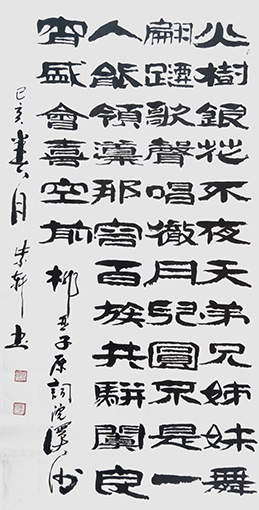 火樹銀花不夜天弟兄姊妹舞
翩躚歌聲唱徹月兒圓不是一
人能領導那容百族共駢闐良
宵盛會喜空前 柳亞子原詞浣溪沙
己亥春月 軒書